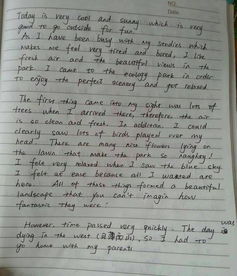 NO.
Date
Today is very cool and sunny which is very
good to go outside for fun.
As I have been busy with my studies which
makes me feel very tired and bored, I like
fresh air and the beautiful views in the
park I came to the ecology park in order
to enjoy the perfect scenery and get relaxed.
The first thing came into my sight was lots of
trees when I arrived there, therefore the air
is so clean and fresh. In addition, I could
clearly saw lots of birds played over my
head. There are many nice flowers lying on
the lawn that make the park so
I felt very relaxed when I saw the blue sky
I felt at ease because all I wanted are
here. All of these things formed a beautiful
landscape that you can't imagin how
fantastic they were.
However, time passed very quickly. The day was
dying in the west so I had to
go home with my parents